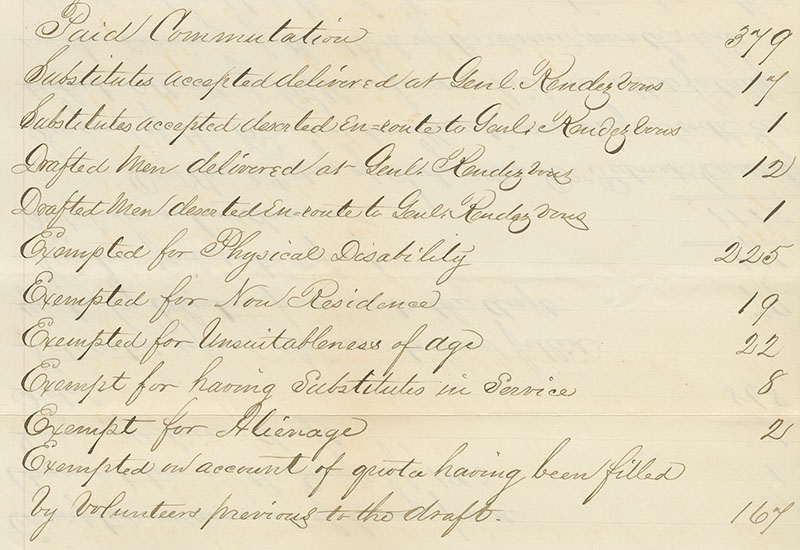 Paid Commutation 379
Substitutes accepted delivered at Genl. Rendezvous 17
Substitutes accepted deserted En=route to Genl. Rendezvous 1
Drafted Men delivered at Genl. Rendezvous 12
Drafted Men deserted En=route to Genl. Rendezvous 1
Exempted for Physical Disability 225
Exempted for Non Residence 19
Exempted for Unsuitableness of age 22
Exempt for having Substitutes in Service 8
Exempt for Alienage 2
Exempted on account of quota having been filled
by Volunteers previous to the draft. 167